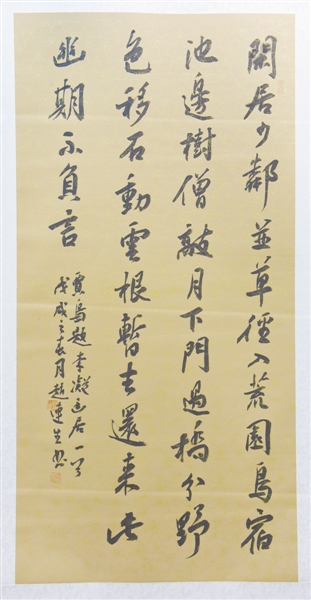 閑居少鄰並草徑入荒園鳥宿
池邊樹僧敲月下門過橋分野
色移石動雲根暫去還來此
幽期不負言
賈島題李凝幽居一首
戊戌之春月趙連生書